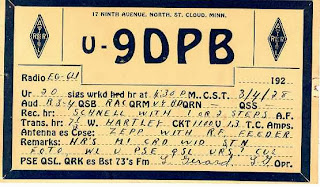 17 NINTH AVENUE, NORTH, ST. CLOUD, MINN.
U-9DPB
Radio EG-6YL 192
Ur 20 sigs wrkd hrd hr at 6:30 P.M. C.S.T. 3/4/28
Aud R3-4 QSB RAC QRM QRN QSS
Rec. hr: SCHNELL WITH 1 or 2 STEPS A.F.
Trans. hr: 7½ W. HARTLEY CKT 1100V 13 T.C. Amps.
Antenna es Cpse: ZEPP WITH R.F. FEEDER
Remarks: HR'S MI CRD WID STN
FOTO WL U PSE QSL URS CUL
PSE QSL, QRK es Bst 73's Fm L. Gerard Opr.